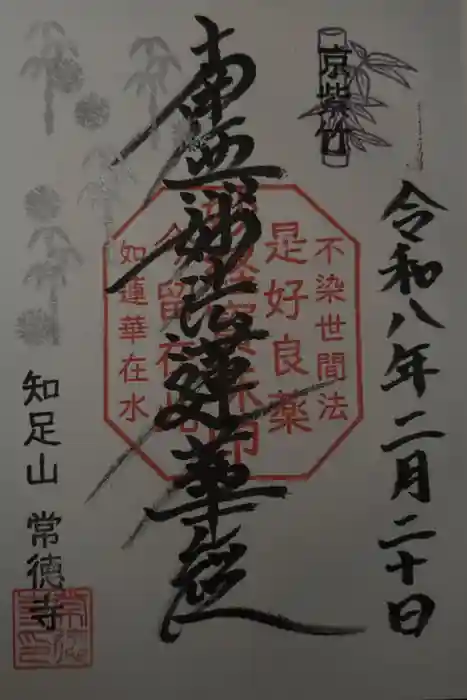 京紫竹
令和八年二月二十日
不染世間法
是好良薬
今留在此
如蓮華在水
南無妙法蓮華経
知足山 常徳寺